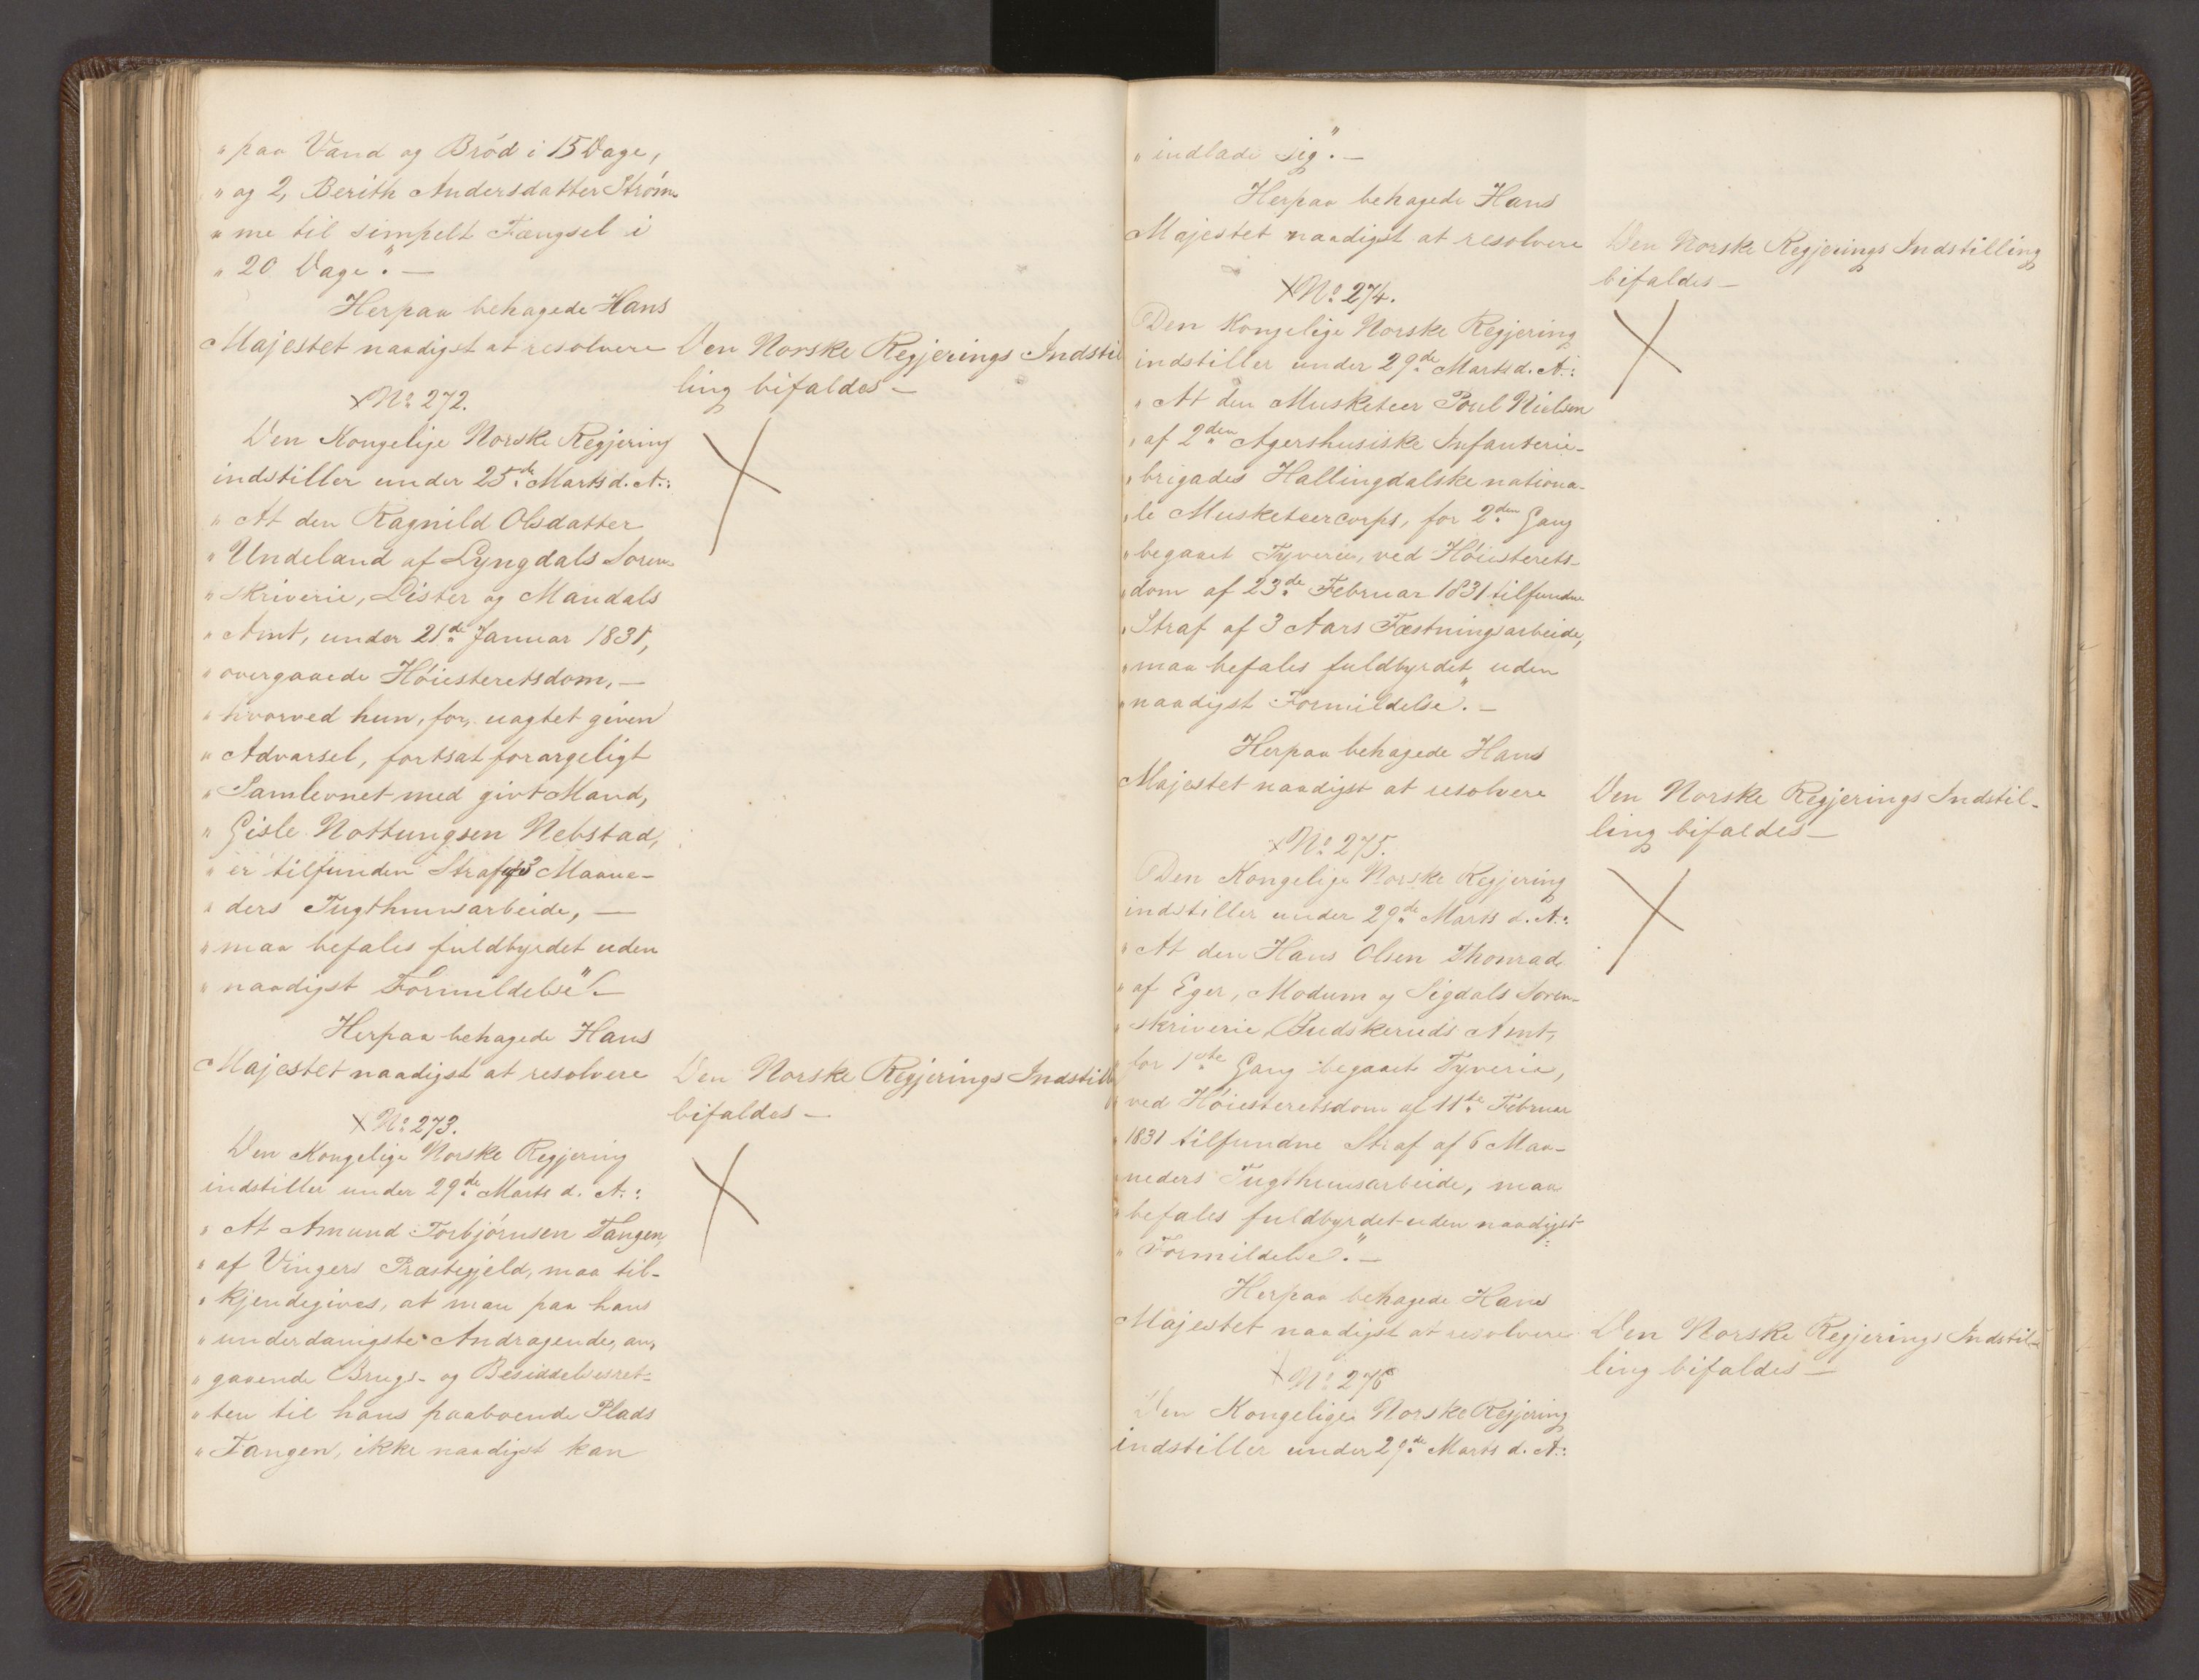 " paa Vand og Brød i 15 Dage,
" og 2, Berith Andersdatter Strøm-
" me til simpelt Fængsel i
" 20 Dage". —
Herpaa behagede Hans
Majestet naadigst at resolvere
Den Norske Regjerings Indstil
ling bifaldes —
No 272.
Den Kongelige Norske Regjering
indstiller under 25de Marts d. A.:
" At den Ragnild Olsdatter
" Undeland af Lyngdals Soren-
" skriverie, Lister og Mandals
" Amt, under 21de Januar 1831,
" overgaaede Høiesteretsdom, —
" hvorved hun, for, uagtet given
" Advarsel, fortsat forargeligt
" Samlevnet med givt Mand,
" Gisle Nottungsen Nebstad,
" er tilfunden Straf af 3 Maane-
" ders Tugthuusarbeide, —
" maa befales fuldbyrdet uden
" naadigst Formildelse". —
Herpaa behagede Hans
Majestet naadigst at resolvere
Den Norske Regjerings Indstill
bifaldes —
No 273.
Den Kongelige Norske Regjering
indstiller under 29de Marts d. A.:
" At Amund Torbjørnsen Tangen,
" af Vingers Præstegjeld, maa til-
" kjendegives, at man paa hans
" underdanigste Andragende, an-
" gaaende Brugs- og Besiddelsesret-
" ten til hans paaboende Plads
" Tangen, ikke naadigst kan
" indlade sig". —
Herpaa behagede Hans
Majestet naadigst at resolvere
Den Norske Regjerings Indstilling
bifaldes —
No 274.
Den Kongelige Norske Regjering
indstiller under 29de Marts d. A.:
" At den Musketeer Poul Nielsen
" af 2den Agershusiske Infanterie-
" brigades Hallingdalske nationa-
" le Musketeercorps, for 2den Gang
" begaaet Tyverie, ved Høiesterets-
" dom af 23de Februar 1831 tilfundne
" Straf af 3 Aars Fæstningsarbeide,
" maa befales fuldbyrdet uden
" naadigst Formildelse". —
Herpaa behagede Hans
Majestet naadigst at resolvere
Den Norske Regjerings Indstil-
ling bifaldes —
No 275.
Den Kongelige Norske Regjering
indstiller under 29de Marts d. A.:
" At den Hans Olsen Thonrad
" af Eger, Modum og Sigdals Soren-
" skriverie, Budskeruds Amt,
" for 1ste Gang begaaet Tyverie,
" ved Høiesteretsdom af 11te Februar
" 1831 tilfundne Straf af 6 Maa-
" neders Tugthuusarbeide, maa
" befales fuldbyrdet uden naadigst
" Formildelse". —
Herpaa behagede Hans
Majestet naadigst at resolvere
Den Norske Regjerings Indstil-
ling bifaldes —
No 276
Den Kongelige Norske Regjering
indstiller under 29de Marts d. A.: